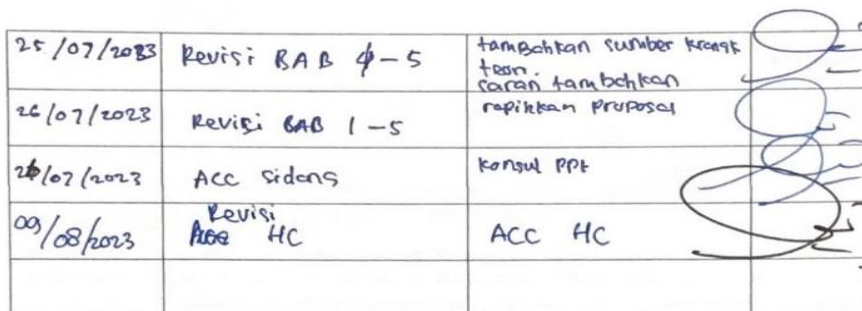 25/07/2023 Revisi BAB 4-5 tambahkan sumber
teori.
saran tambahkan
26/07/2023 Revisi BAB 1-5 rapihkan proposal
/07/2023 ACC sidang konsul PPt
Revisi
09/08/2023 HC ACC HC